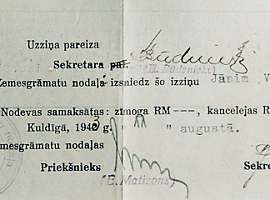 Uzziņa pareiza
Sekretara pal.
(B. Rudenieks)
Zemesgrāmatu nodaļa izsniedz šo izziņu Jānim V
Nodevas samaksātas: zīmoga RM ---, kancelejas R
Kuldīgā, 1943 " " augustā.
emesgrāmatu nodaļas
Priekšnieks
(E. Matisons)
Sekr